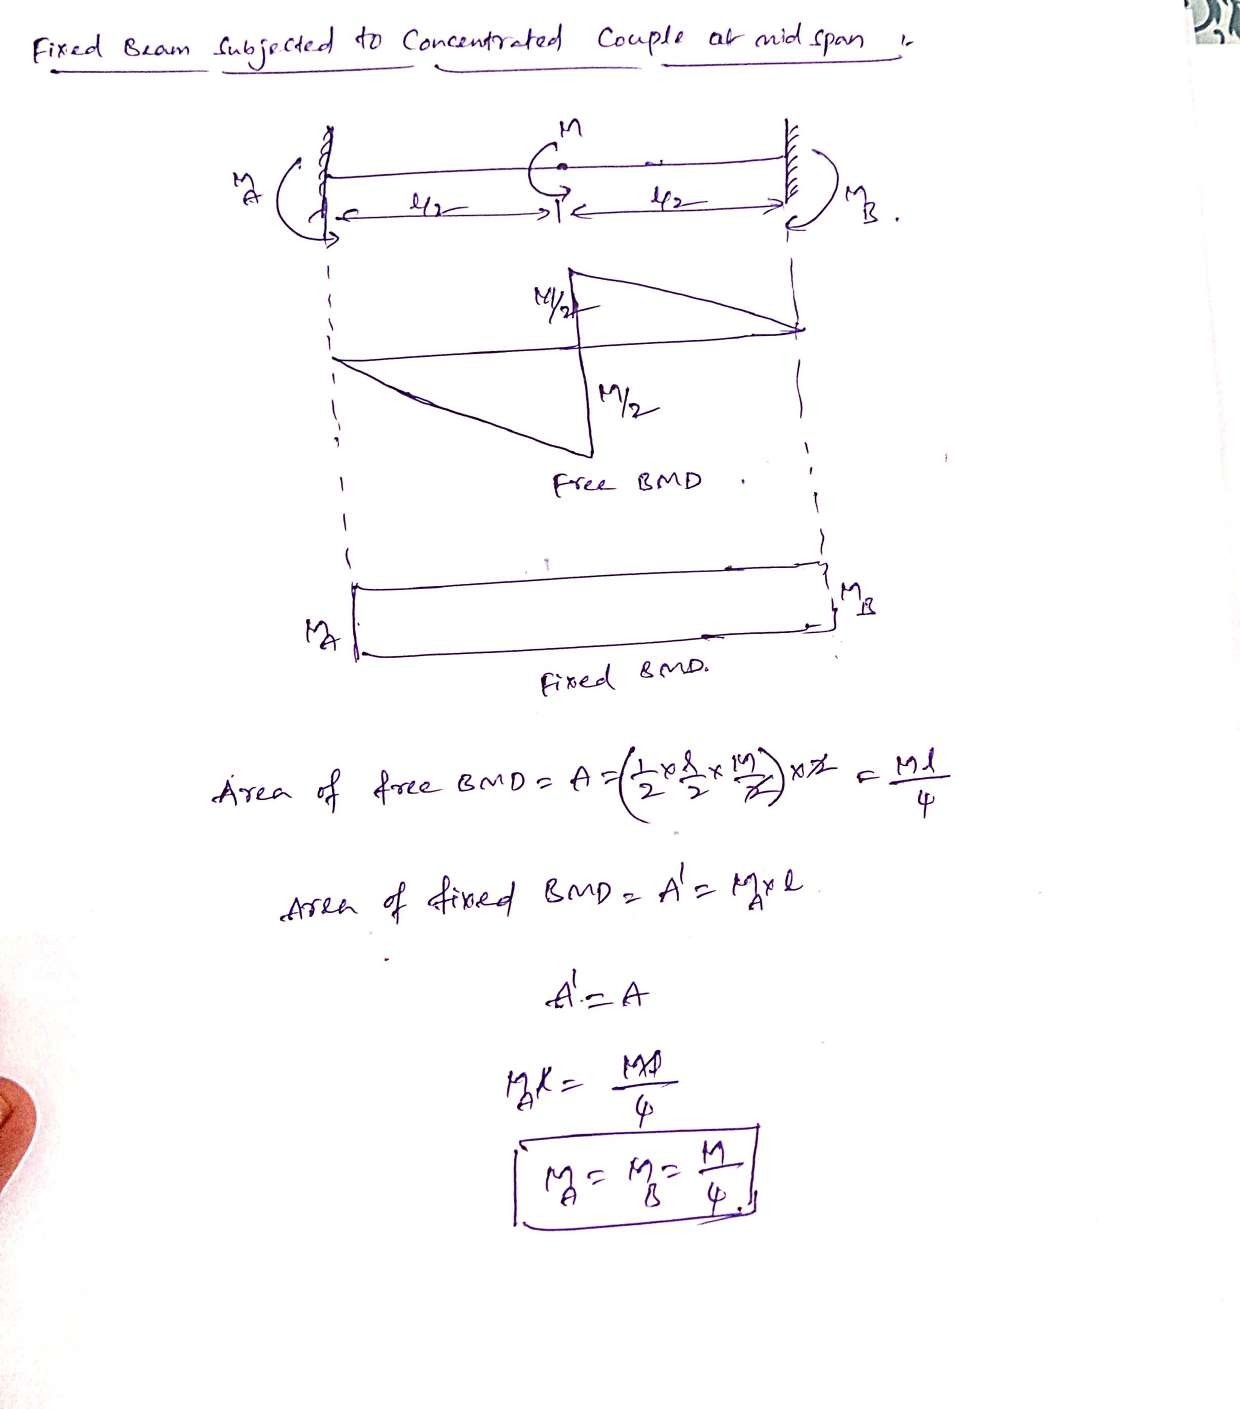 Fixed Beam Subjected to Concentrated Couple at mid span :-
M
M_A
l/2
l/2
M_B.
M/2
M/2
Free BMD.
M_A
M_B
Fixed BMD.
Area of free BMD = A = (1/2 × l/2 × M/2) × 2 = Ml/4
Area of fixed BMD = A' = M_A × l
A' = A
M_A l = Ml/4
M_A = M_B = M/4.